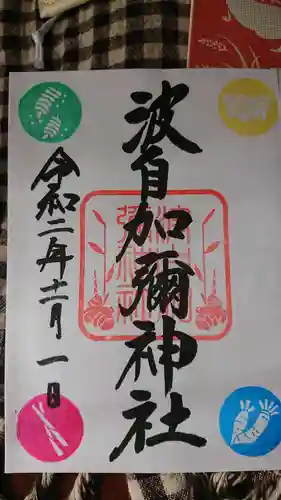 波自加彌神社
令和二年十二月一日